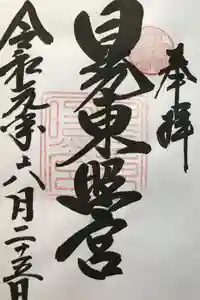 奉拝
東照宮
令和元年八月二十五日